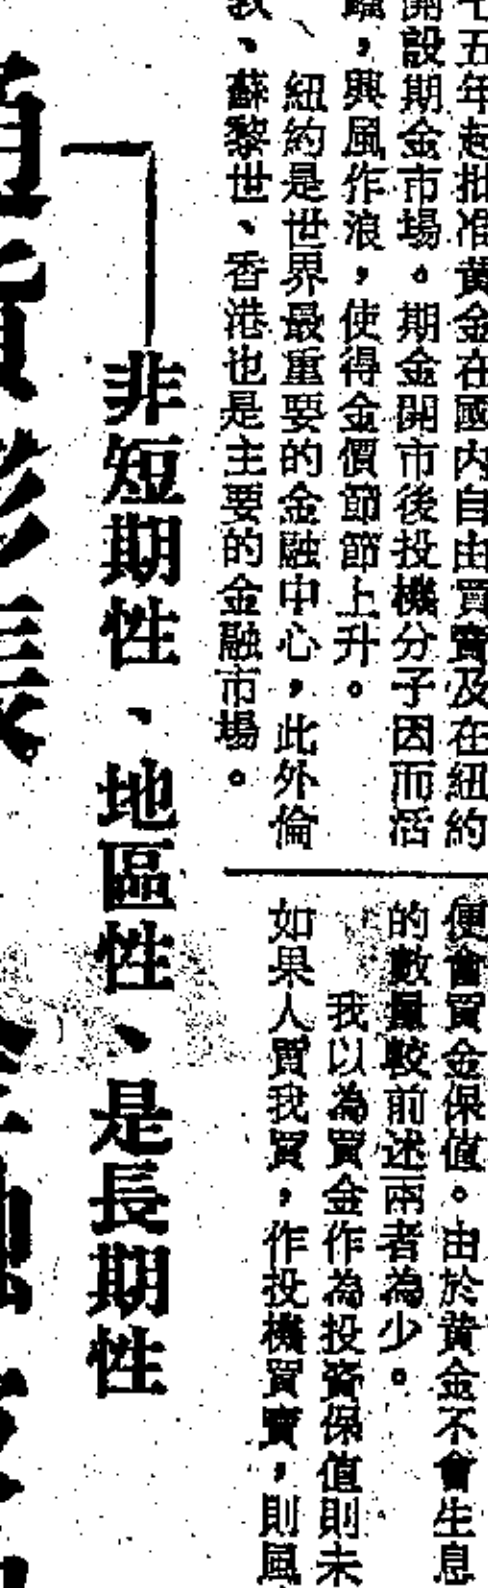 七五年起批准黃金在國內自由買賣及在紐約
開設期金市場。期金開市後投機分子因而活
，興風作浪，使得金價節節上升。
紐約是世界最重要的金融中心，此外倫
敦、蘇黎世、香港也是主要的金融市場。
便會買金保值。由於黃金不會生息
的數量較前述兩者為少。
我以為買金作為投資保值則未
如果人買我買，作投機買賣，則風
非短期性、地區性、是長期性